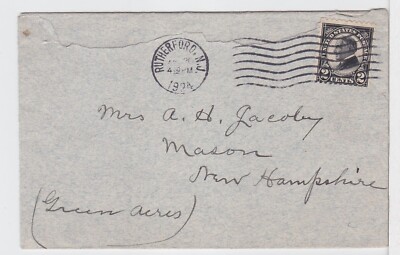 RUTHERFORD, N.J.
1924
UNITED STATES POSTAGE
2 CENTS 2
Mrs A. H. Jacoby
Mason
New Hampshire
(Green acres)